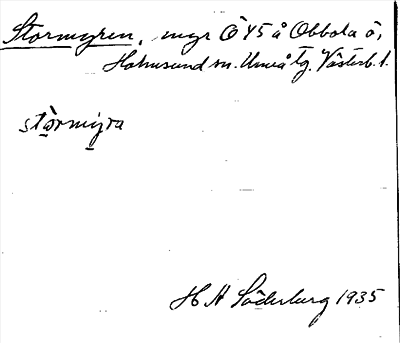 Stormyren, myr Ö 45 å Obbola ö,
Holmsund sn. Umeå tg. Västerb. l.
stòrmyra
H A Söderberg 1935